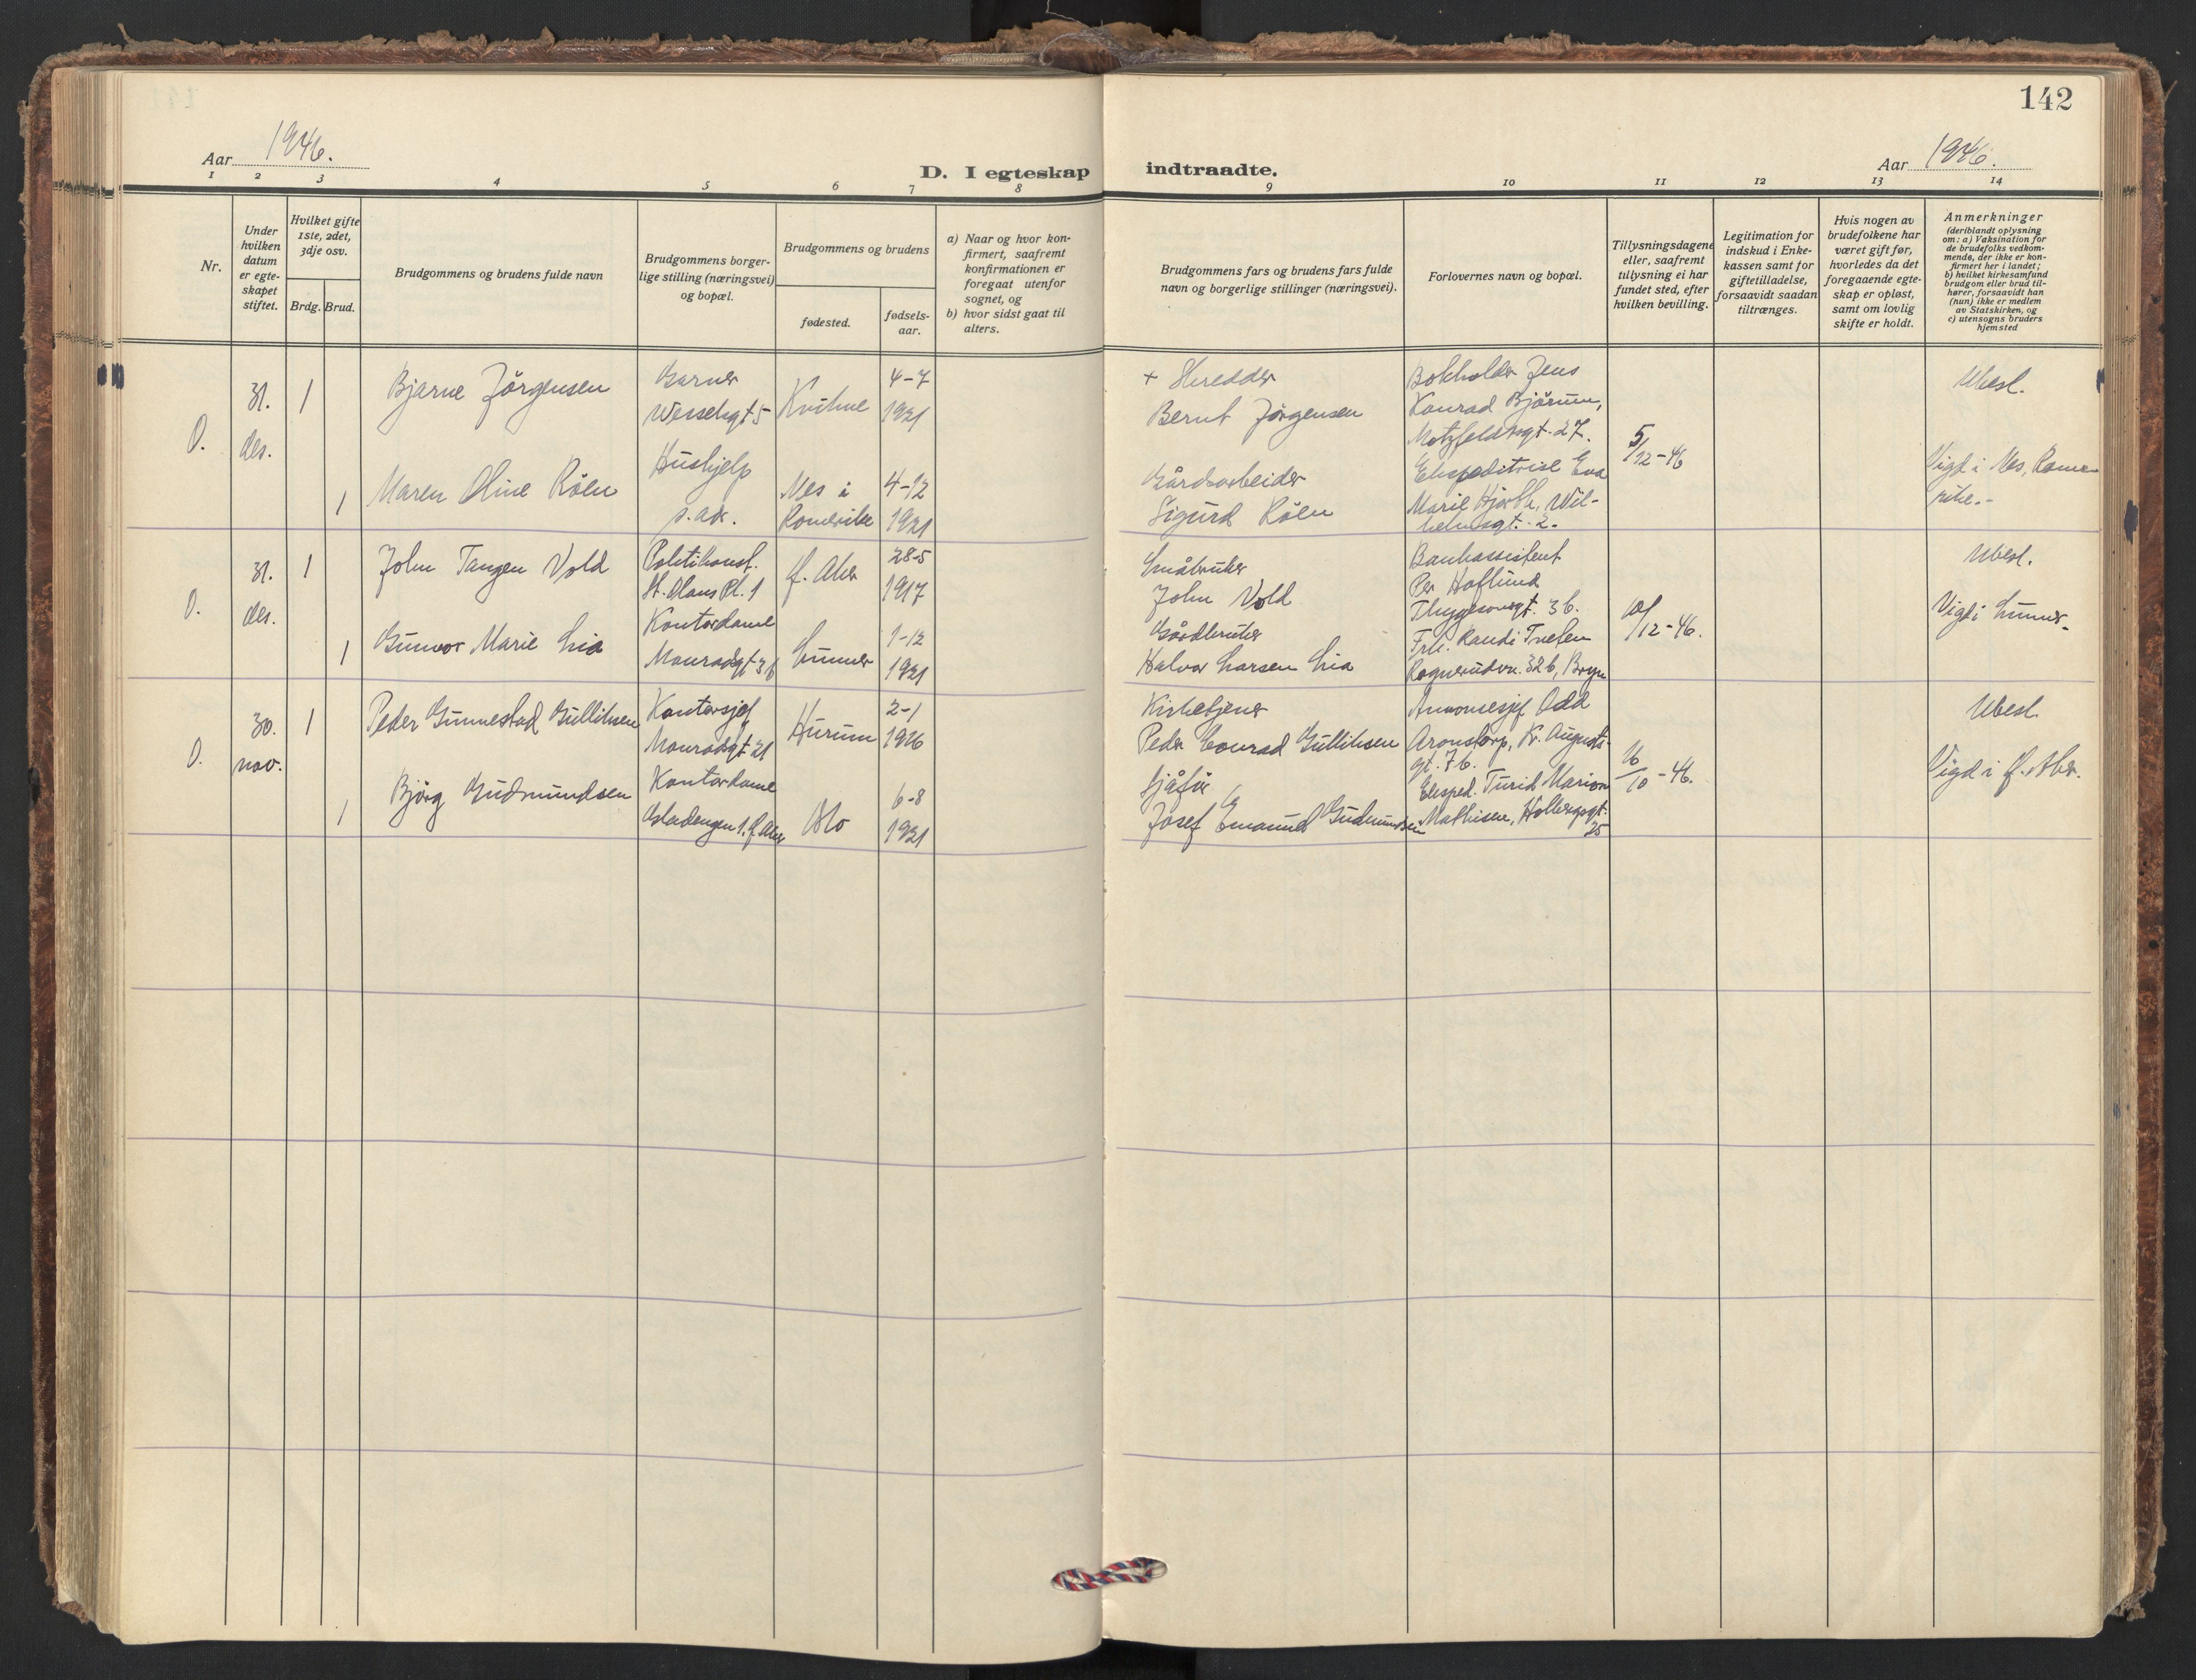 142
Aar 1946.
D. I egteskap indtraadte.
Aar 1946.
1 2 3 4 5 6 7 8 9 10 11 12 13 14
Nr.
Under hvilken datum er egte-skapet stiftet.
Hvilket gifte 1ste, 2det, 3dje osv.
Brdg. Brud.
Brudgommens og brudens fulde navn
Brudgommens borger-lige stilling (næringsvei) og bopæl.
Brudgommens og brudens
fødested.
fødsels-aar.
a) Naar og hvor kon-firmert, saafremt konfirmationen er foregaat utenfor sognet, og
b) hvor sidst gaat til alters.
Brudgommens fars og brudens fars fulde navn og borgerlige stillinger (næringsvei).
Forlovernes navn og bopæl.
Tillysningsdagene eller, saafremt tillysning ei har fundet sted, efter hvilken bevilling.
Legitimation for indskud i Enke-kassen samt for giftetilladelse, forsaavidt saadan tiltrænges.
Hvis nogen av brudefolkene har været gift før, hvorledes da det foregaaende egte-skap er opløst, samt om lovlig skifte er holdt.
Anmerkninger (deriblandt oplysning om: a) Vaksination for de brudefolks vedkom-mende, der ikke er kon-firmert her i landet; b) hvilket kirkesamfund brudgom eller brud til-hører, forsaavidt han (hun) ikke er medlem av Statskirken, og c) utensogns bruders hjemsted
0.
31.
des.
1
Bjarne Jörgensen
Garner
Wesselsgt 5
Kvikne
4-7
1921
+ Skredder
Bernt Jörgensen
Bokholder Jens
Konrad Bjørum,
Motzfeldtsgt. 27.
5/12-46
Ubesl.
1
Maren Oline Röen
Hushjelp
s. adr.
Nes i
Romerike
4-12
1921
Gårdsarbeider
Sigurd Röen
Ekspeditrise Eva
Marie Hjorth, Wil-
helmsgt. 2.
Vigd i Nes, Rome-
rike.-
0.
31.
des.
1
John Tangen Vold
Politikonst.
St. Olans Pl. 1
f. Aker
28-5
1917
Småbruker
John Vold
Bankassistent
Per Hoflund
Thygesonsgt. 3 b.
10/12-46.
Ubesl.
1
Gunvor Marie Lia
Kontordame
Monradsgt 3 b
Lunner
1-12
1921
Gårdbruker
Halvor Larsen Lia
Frk. Randi Tveten
Rognerudvn. 32 b, Bryn
Vigd i Lunner.
0.
30.
nov.
1
Peder Gunnestad Gulliksen
Kontorsjef
Monradsgt 21
Hurum
2-1
1916
Kirketjener
Peder Conrad Gulliksen
Annonsesjef Odd
Aronstorp, Kr. Augusts-
gt. 7 b.
16/10-46.
Ubesl.
1
Björg Gudmundsen
Kontordame
Oslo
6-8
1921
Sjåfør
Josef Emanuel Gudmundsen
Eksped. Turid Marion
Mathisen, Holbergsgt.
25
Vigd i f. Aker.